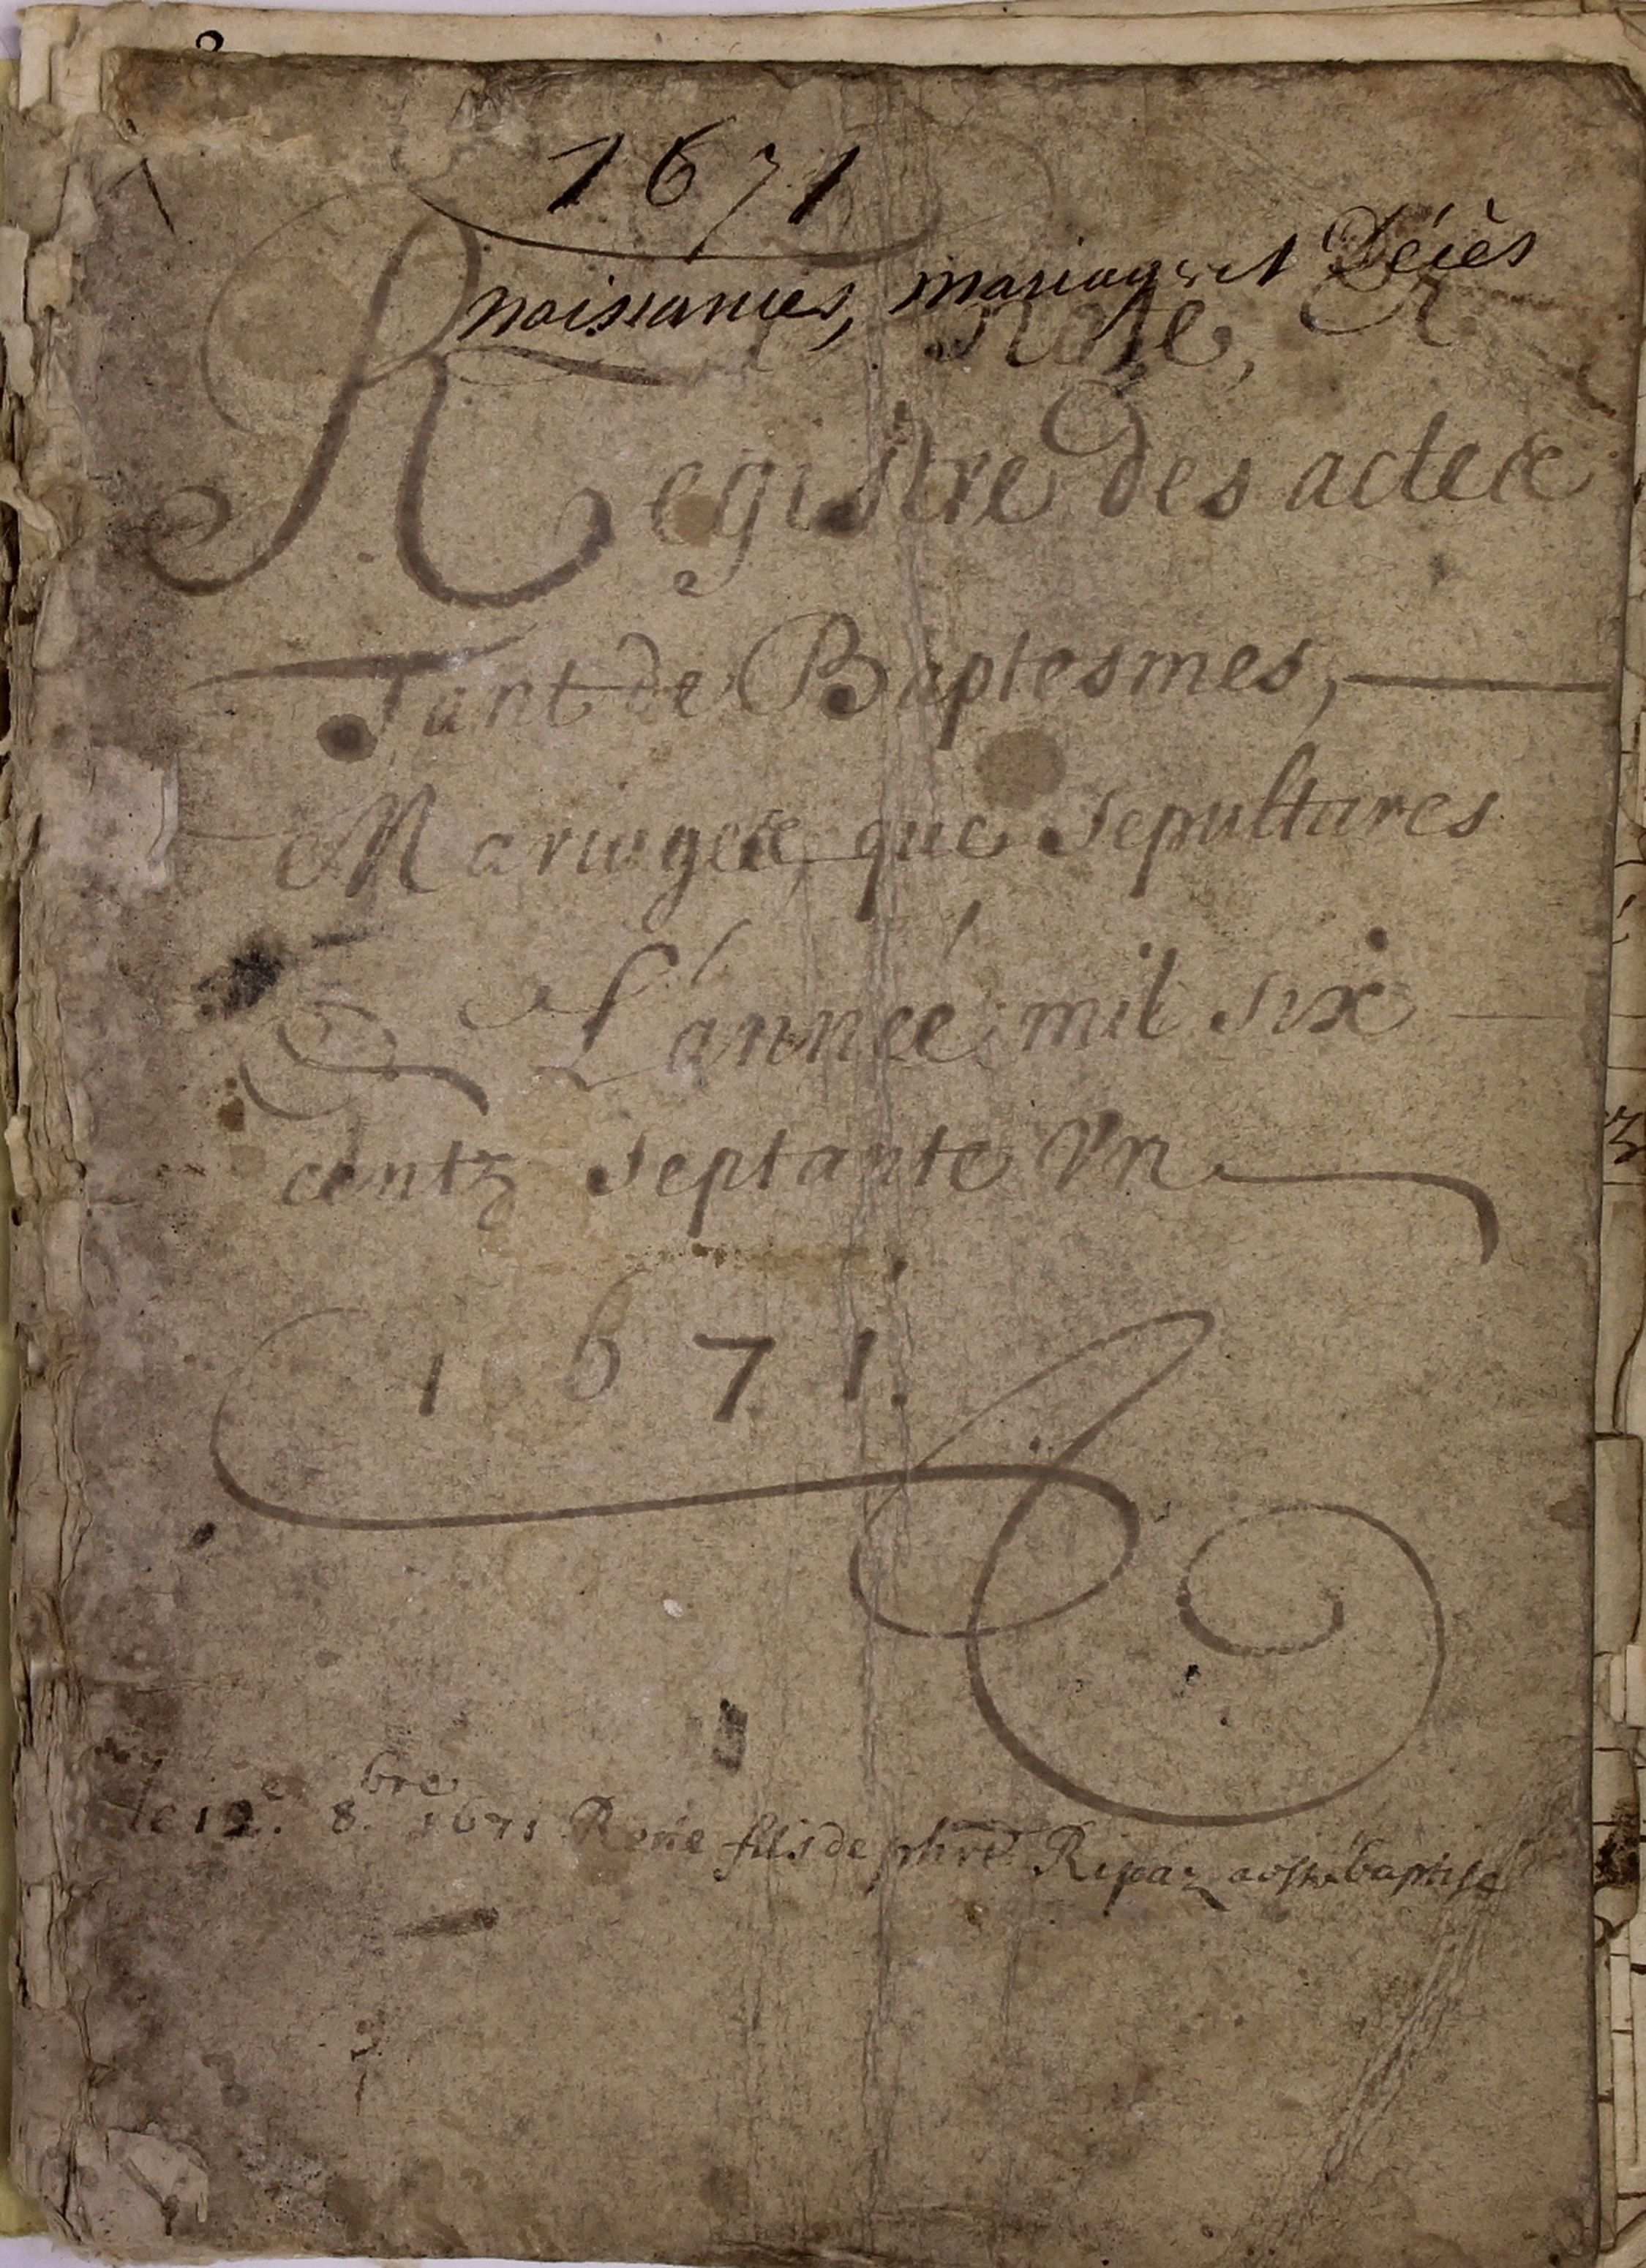 1671
naissances, mariages et Décès
Note, &
Registre des actes
Tant de Baptesmes,
Mariages, que Sepultures
L'année mil six
centz Septante Vn
1 6 7 1.
le 12e. 8.bre 1671 René fils de phre Ripaz a esté baptisé